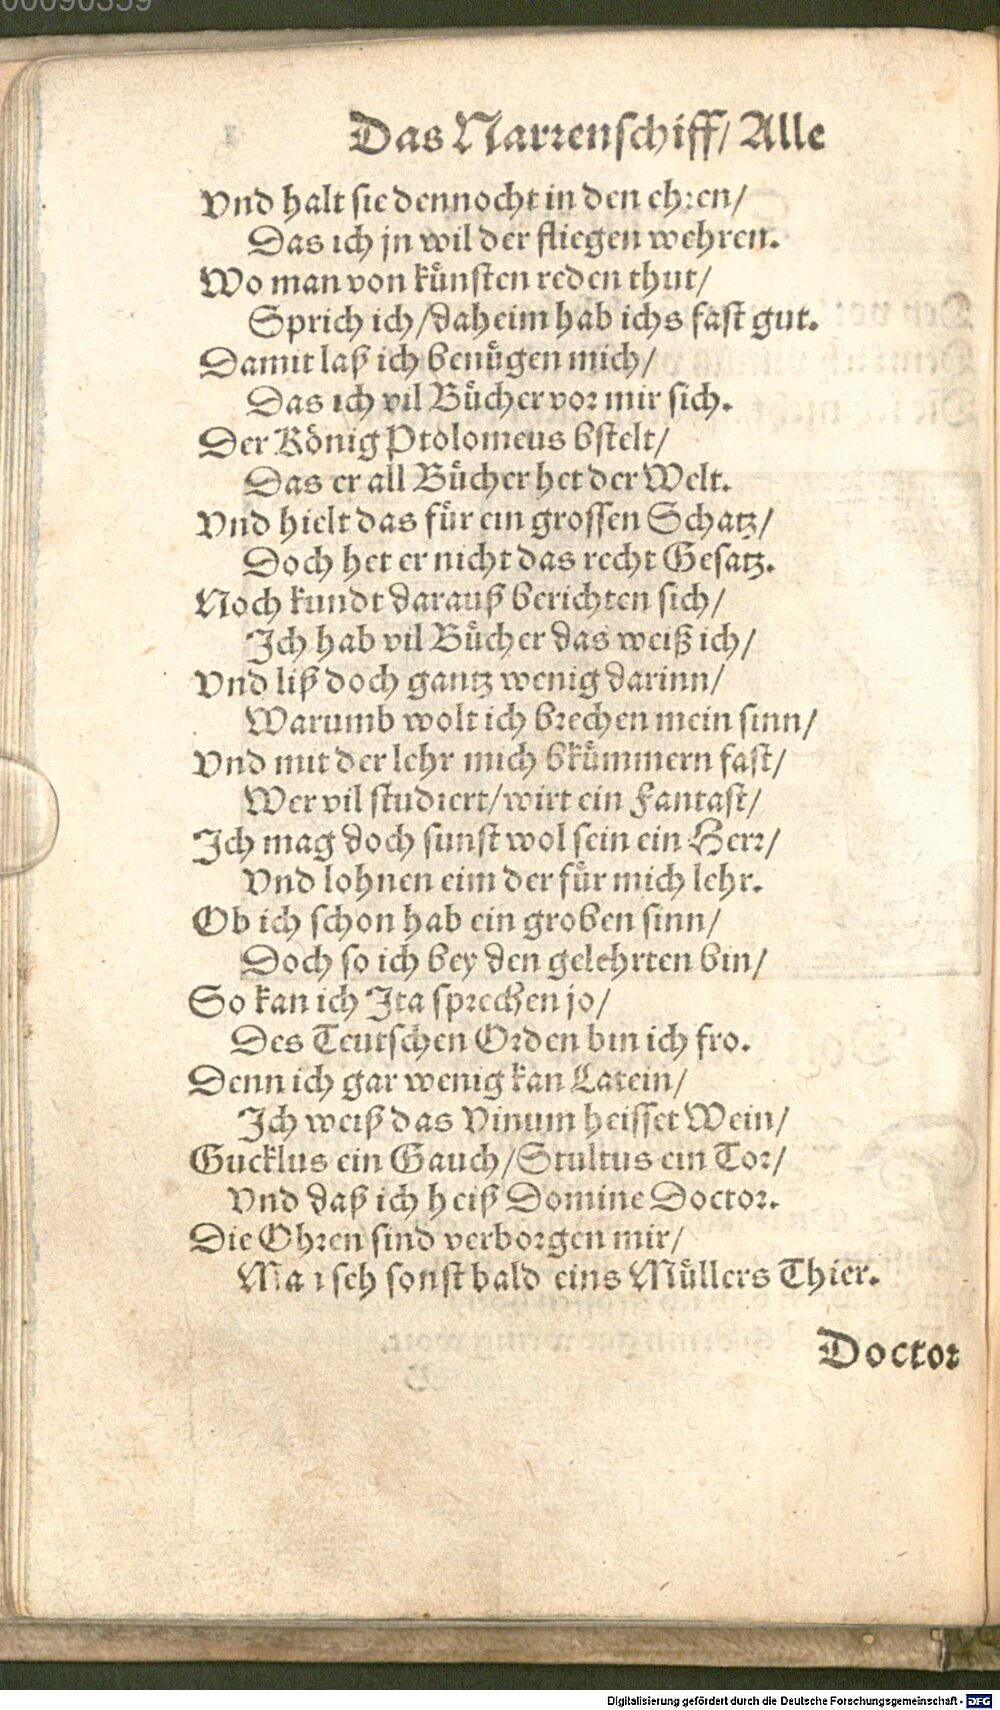 00090359
Das Narrenschiff/ Alle
Vnd halt sie dennocht in den ehren/
Das ich jn wil der fliegen wehren.
Wo man von kuͤnsten reden thut/
Sprich ich/daheim hab ichs fast gut.
Damit laß ich benuͤgen mich/
Das ich vil Buͤcher vor mir sich.
Der Koͤnig Ptolomeus bstelt/
Das er all Buͤcher het der Welt.
Vnd hielt das fuͤr ein grossen Schatz/
Doch het er nicht das recht Gesatz.
Noch kundt darauß berichten sich/
Ich hab vil Buͤcher das weiß ich/
Vnd liß doch gantz wenig darinn/
Warumb wolt ich brechen mein sinn/
Vnd mit der lehr mich bkuͤmmern fast/
Wer vil studiert/wirt ein Fantast/
Ich mag doch sunst wol sein ein Herr/
Vnd lohnen eim der fuͤr mich lehr.
Ob ich schon hab ein groben sinn/
Doch so ich bey den gelehrten bin/
So kan ich Ita sprechen jo/
Des Teutschen Orden bin ich fro.
Denn ich gar wenig kan Latein/
Ich weiß das Vinum heisset Wein/
Gucklus ein Gauch/Stultus ein Tor/
Vnd daß ich heiß Domine Doctor.
Die Ohren sind verborgen mir/
seh sonst bald eins Muͤllers Thier.
Doctor
Digitalisierung gefördert durch die Deutsche Forschungsgemeinschaft - DFG